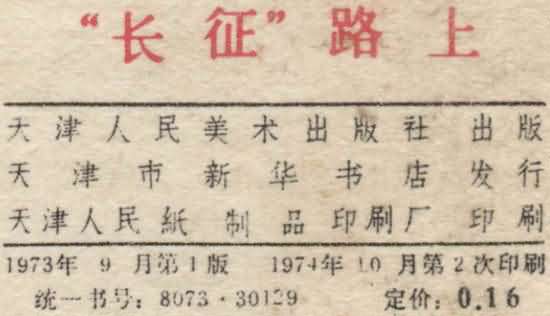 “长征”路上
天津人民美术出版社 出版
天津市新华书店发行
天津人民紙制品印刷厂 印刷
1973年 9 月第1版 1974年 10 月第2次印刷
统一书号：8073·30129 定价：0.16